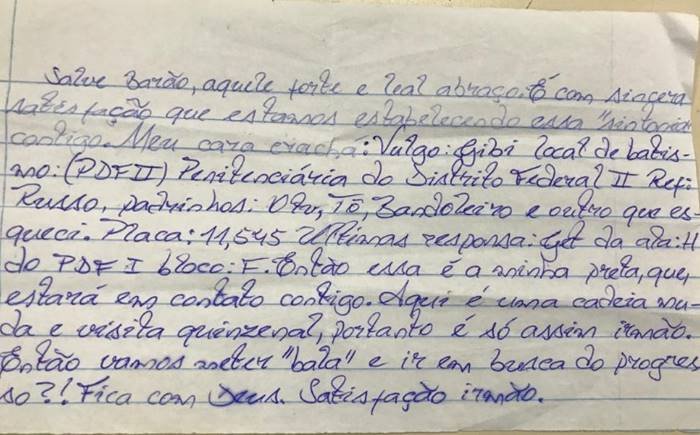 Salve Barão, aquele forte e leal abraço. É com sincera
satisfação que estamos estabelecendo essa "sintonia"
contigo. Meu cara crachá: Vulgo: Gibi local de batis-
mo: (PDF II) Penitenciária do Distrito Federal II Refi:
Russo, padrinhos: Dtv, Tô, Bandoleiro e outro que es
queci. Placa: 11,545 Ultimas responsa: Get da ala: H
do PDF I bloco: F. Então essa é a minha preta, que,
estará em contato contigo. Aqui é uma cadeia mu-
da e visita quinzenal, portanto é só assim irmão.
Então vamos meter "bala" e ir em busca do progres
so?! Fica com Deus. Satisfação irmão.